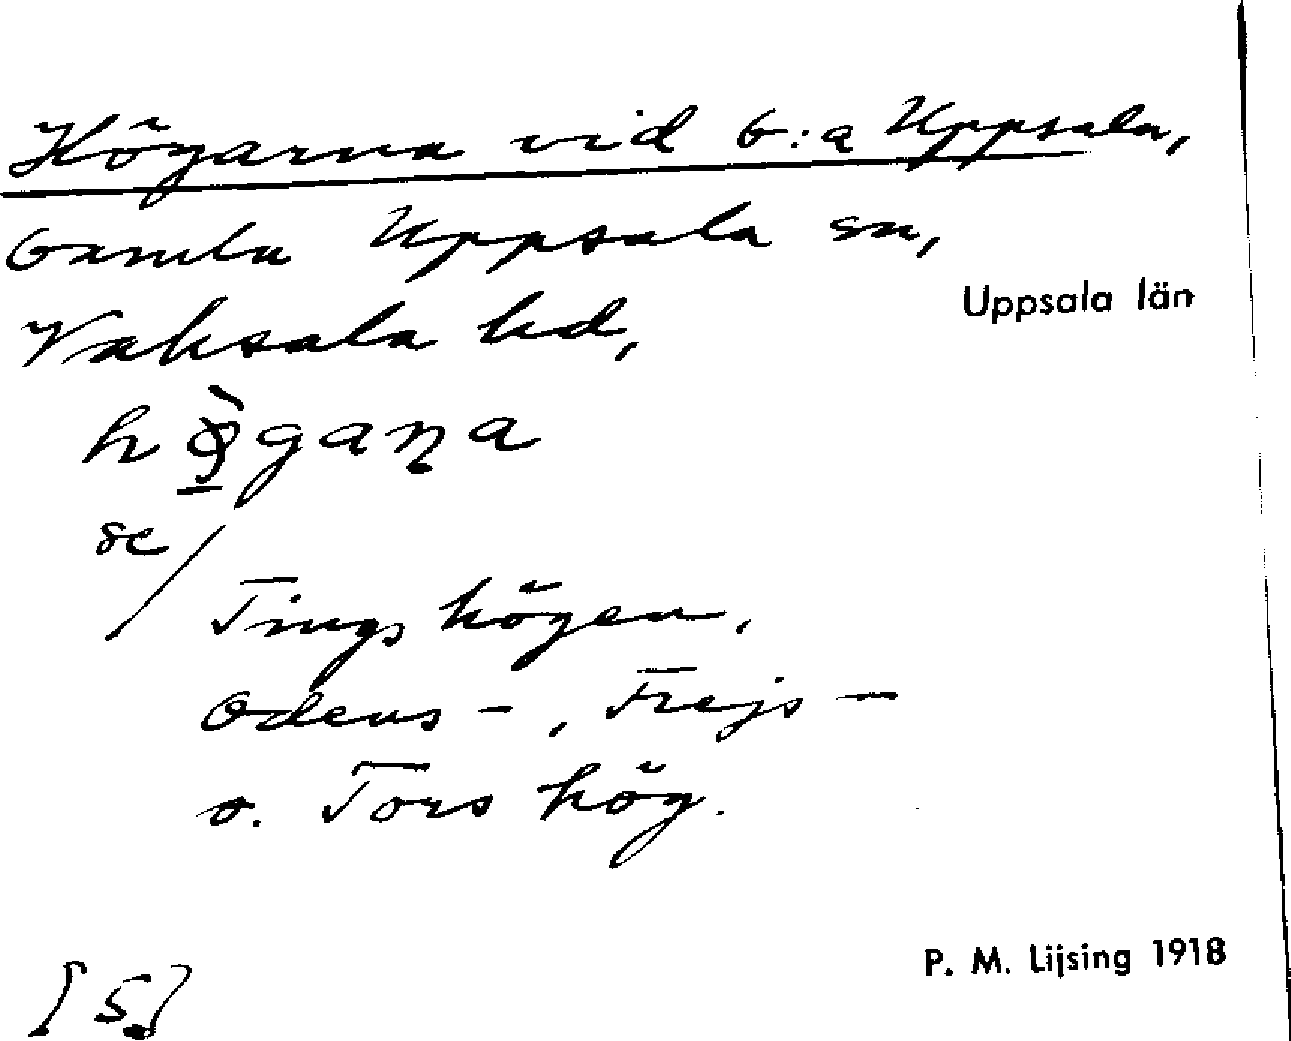 Högarna vid G:a Uppsala,
Gamla Uppsala sn,
Uppsala län
Vaksala hd,
hø̀gaṇa
se/
Tingshögen,
Odens-, Frejs-
o. Tors hög.
P. M. Lijsing 1918
[S.]